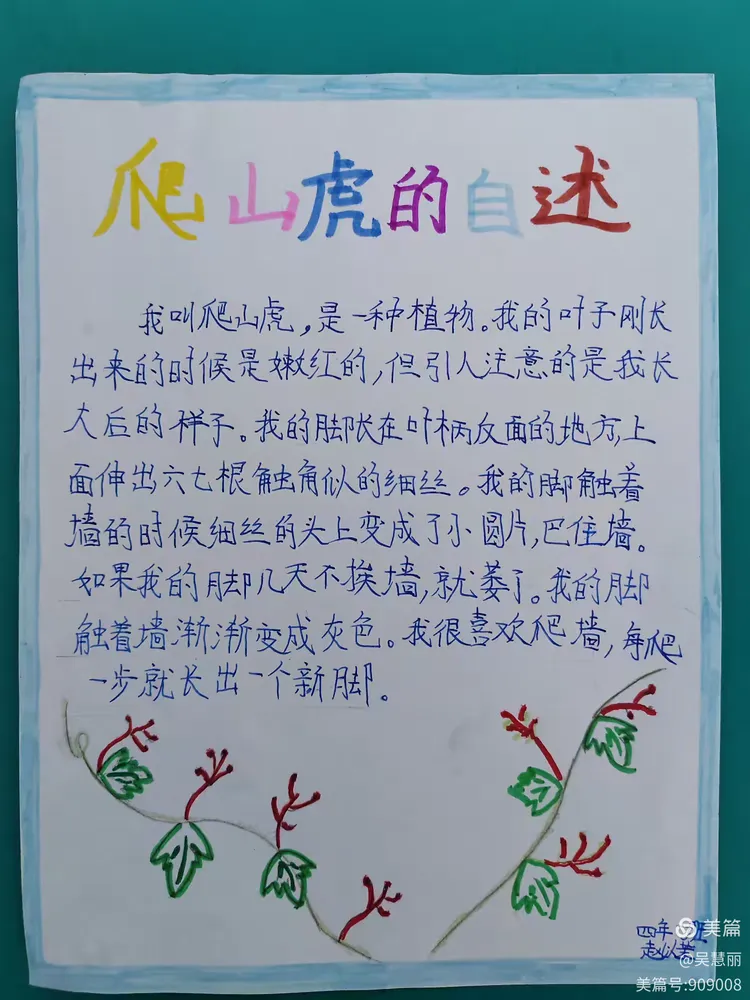 爬山虎的自述
我叫爬山虎，是一种植物。我的叶子刚长
出来的时候是嫩红的，但引人注意的是我长
大后的样子。我的脚长在叶柄反面的地方，上
面伸出六七根触角似的细丝。我的脚触着
墙的时候细丝的头上变成了小圆片，巴住墙。
如果我的脚几天不挨墙，就萎了。我的脚
触着墙渐渐变成灰色。我很喜欢爬墙，每爬
一步就长出一个新脚。
四年 班
赵以
美篇
@吴慧丽
美篇号:909008